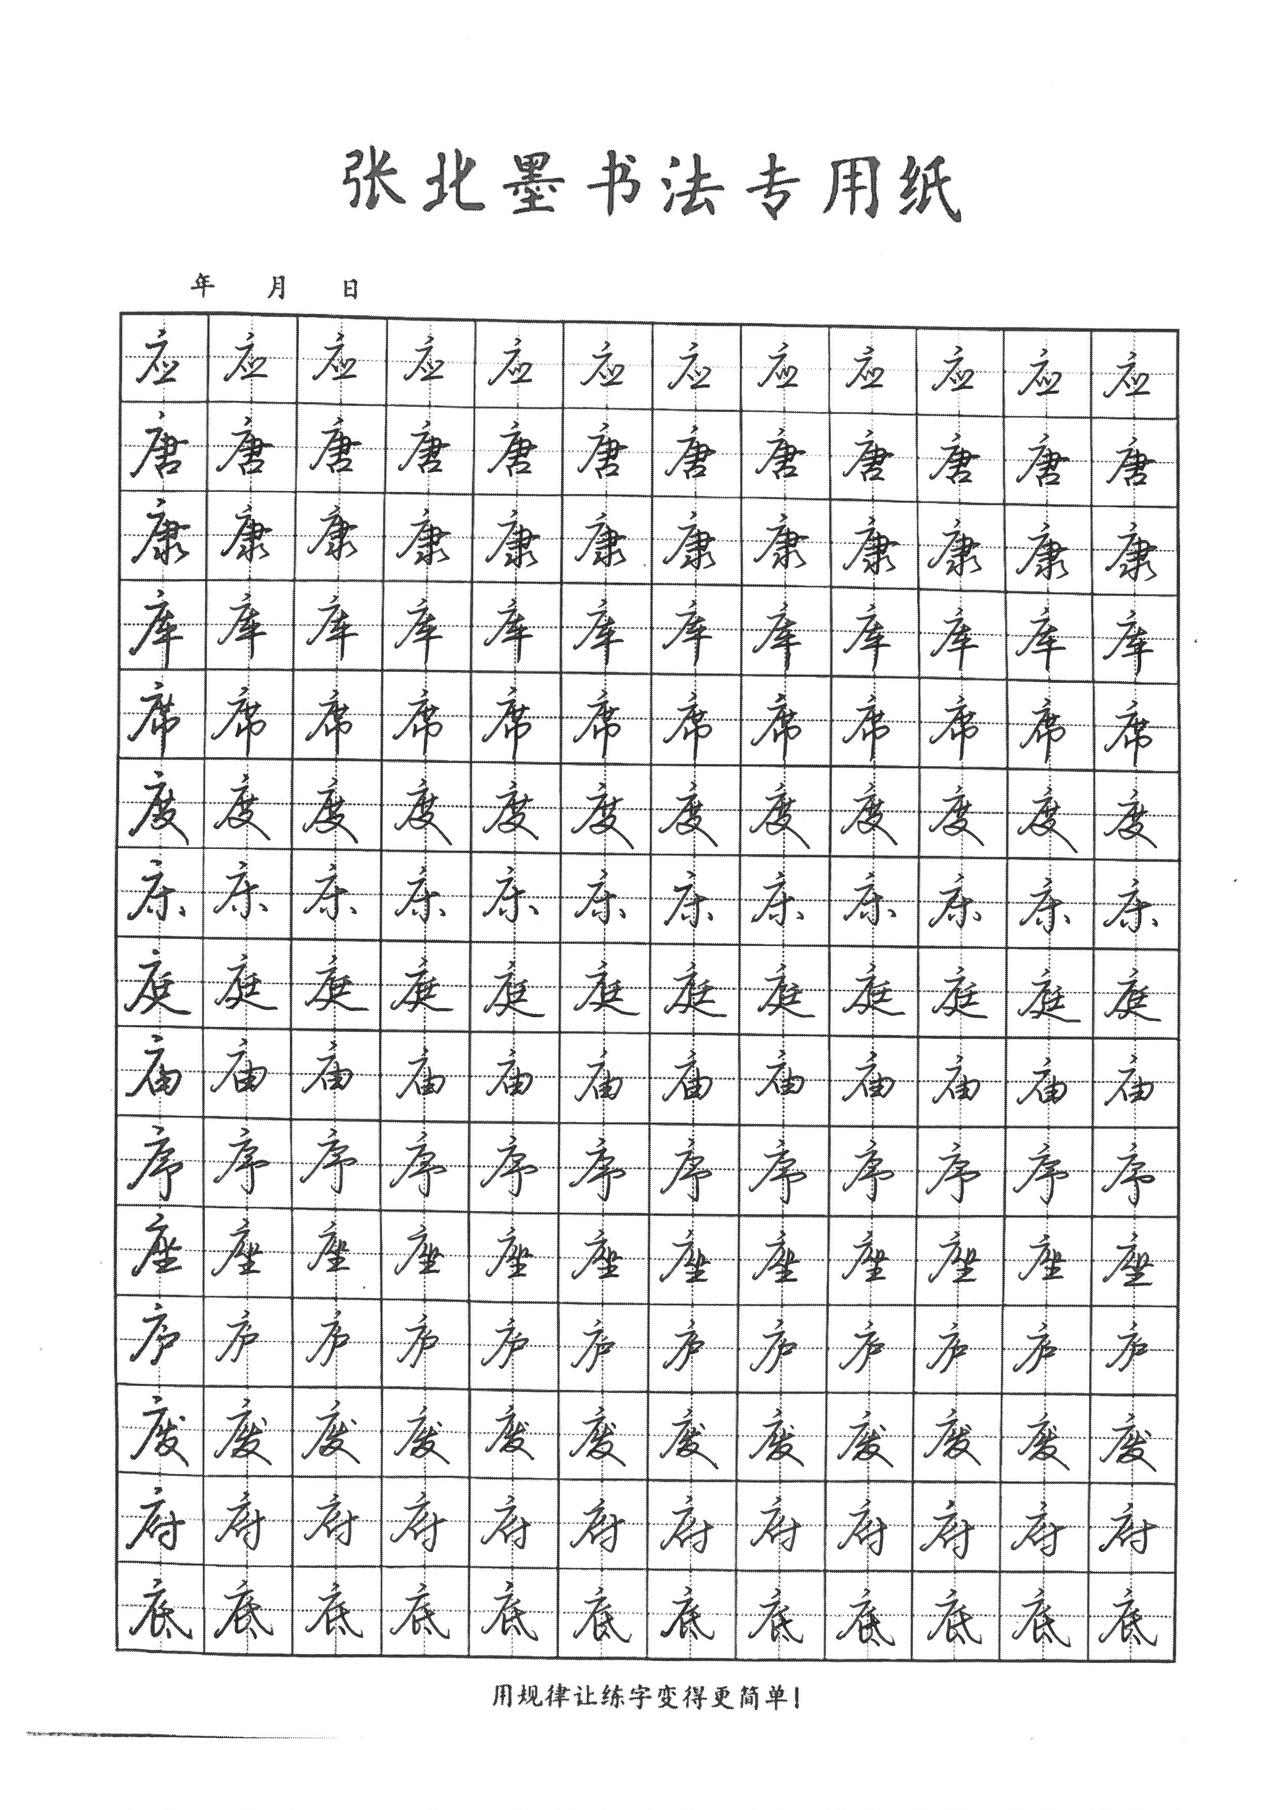 张北墨书法专用纸
年 月 日
应应应应应应应应应应应应
唐唐唐唐唐唐唐唐唐唐唐唐
康康康康康康康康康康康康
库库库库库库库库库库库库
席席席席席席席席席席席席
度度度度度度度度度度度度
床床床床床床床床床床床床
庭庭庭庭庭庭庭庭庭庭庭庭
庙庙庙庙庙庙庙庙庙庙庙庙
序序序序序序序序序序序序
座座座座座座座座座座座座
庐庐庐庐庐庐庐庐庐庐庐庐
废废废废废废废废废废废废
府府府府府府府府府府府府
底底底底底底底底底底底底
用规律让练字变得更简单!